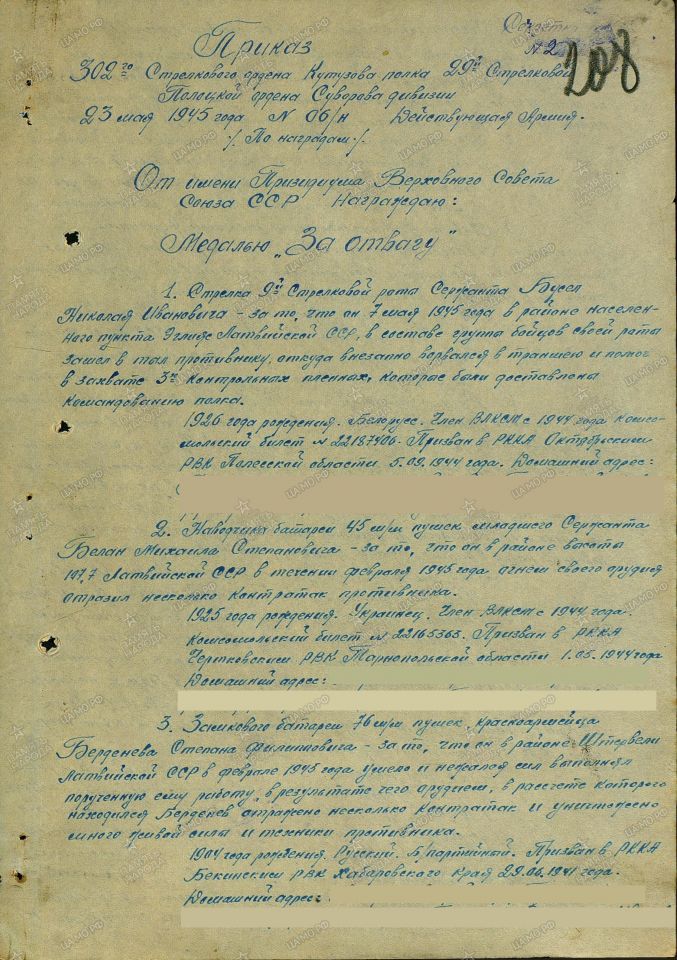 Секретно
№ 2
208
Приказ
302го Стрелкового ордена Кутузова полка 29й Стрелковой
Полоцкой ордена Суворова дивизии
23 мая 1945 года № 06/н Действующая Армия.
./. По наградам ./.
От имени Призидиума Верховного Совета
Союза ССР Награждаю:
Медалью „За отвагу"
1. Стрелка 9й Стрелковой роты Сержанта Бусел
Николая Ивановича – за то, что он 7 мая 1945 года в районе населен-
ного пункта Эглифе Латвийской ССР, в составе группы бойцов своей роты
зашел в тыл противнику, откуда внезапно ворвался в траншею и помог
в захвате 3х контрольных пленных, которые были доставлены
командованию полка.
1926 года рождения. Белорус. Член ВЛКСМ с 1944 года Комсо-
мольский билет № 22187406. Призван в РККА Октябрьским
РВК Полесской области 5.09.1944 года. Домашний адрес:
2. Наводчика батареи 45 м/м пушек младшего Сержанта
Белан Михаила Степановича – за то, что он в районе высоты
147,7 Латвийской ССР в течении февраля 1945 года огнем своего орудия
отразил несколько контратак противника.
1925 года рождения. Украинец. Член ВЛКСМ с 1944 года.
Комсомольский билет № 22165363. Призван в РККА
Чертковским РВК Тарнопольской области 1.05.1944 года
Домашний адрес:
3. Замкового батареи 76 м/м пушек, красноармейца
Берденева Степана Филипповича – за то, что он в районе Штервели
Латвийской ССР в феврале 1945 года умело и не жалея сил выполнял
порученную ему работу, в результате чего орудием, в рассчете которого
находился Берденев отражено несколько контратак и уничтожено
много живой силы и техники противника.
1904 года рождения. Русский. Б/партийный. Призван в РККА
Бекинским РВК Хабаровского края 29.06.1941 года.
Домашний адрес: